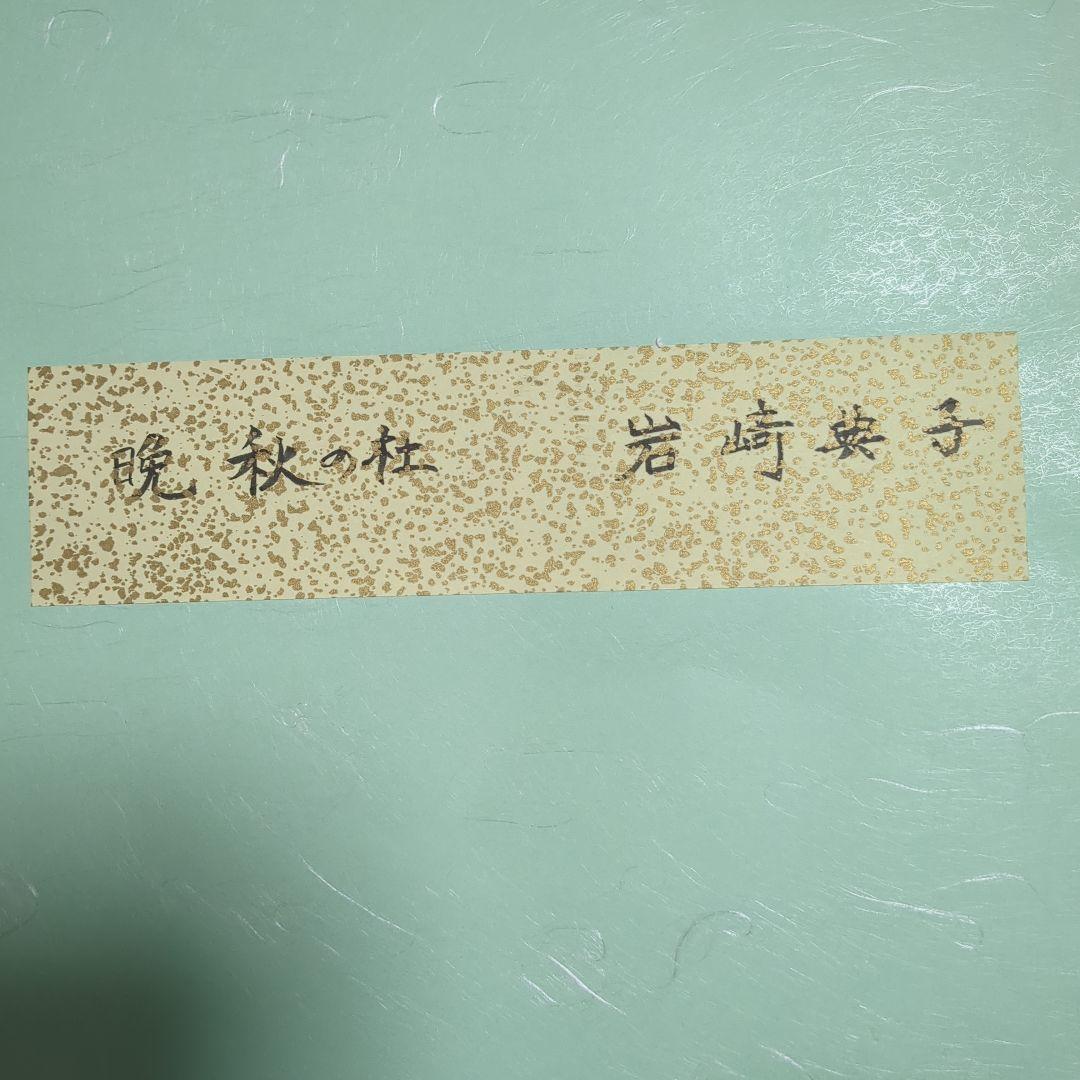 晩秋の杜 岩崎典子